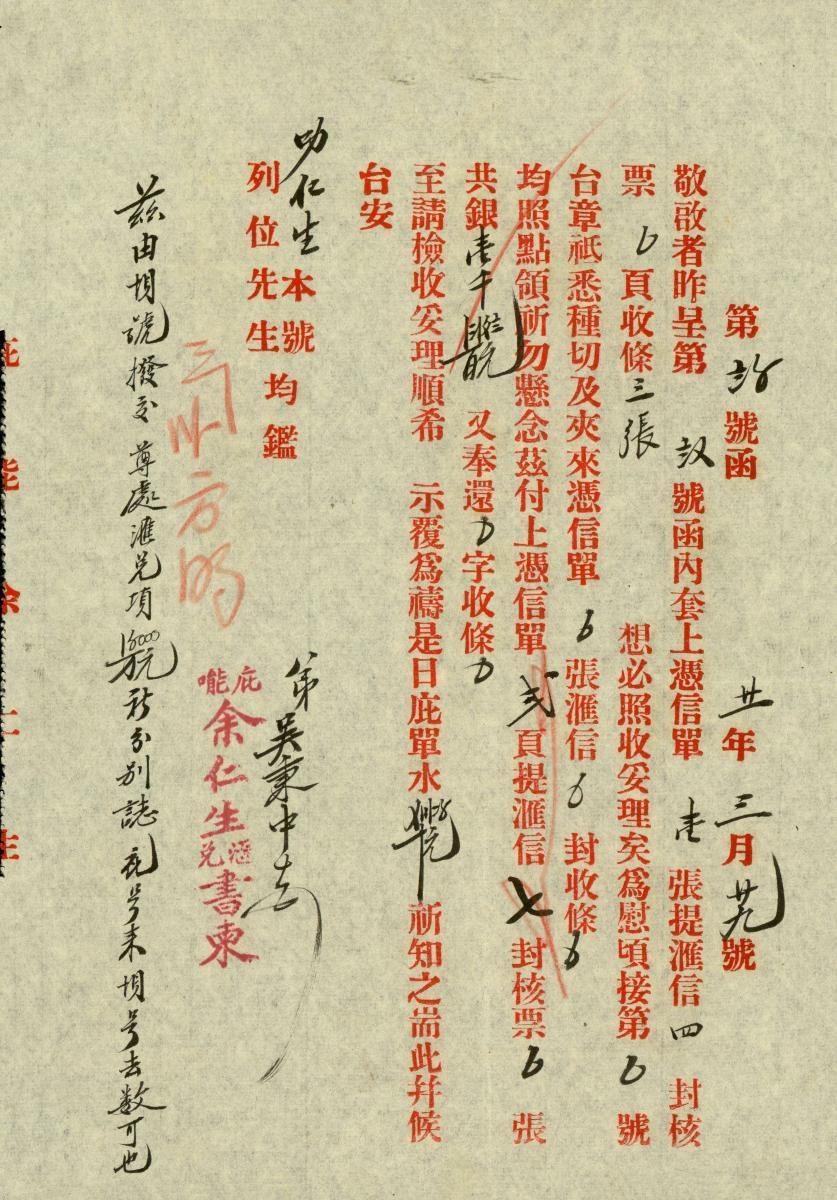 第 號函 廿年三月廿九號
敬啟者昨呈第 號函內套上憑信單壹張提滙信四封核
票 頁收條三張 想必照收妥理矣為慰頃接第 號
台章祇悉種切及夾來憑信單 張滙信 封收條
均照點領祈勿懸念茲付上憑信單弍頁提滙信七封核票 張
共銀壹千 又奉還 字收條
至請檢收妥理順希 示覆為禱是日庇單水 祈知之耑此幷候
台安
叻仁生本號
列位先生均鑑
弟吳秉中
庇能余仁生滙兌書柬
茲由埧號撥交尊處滙兌項 祈分別誌庇号來埧号去数可也